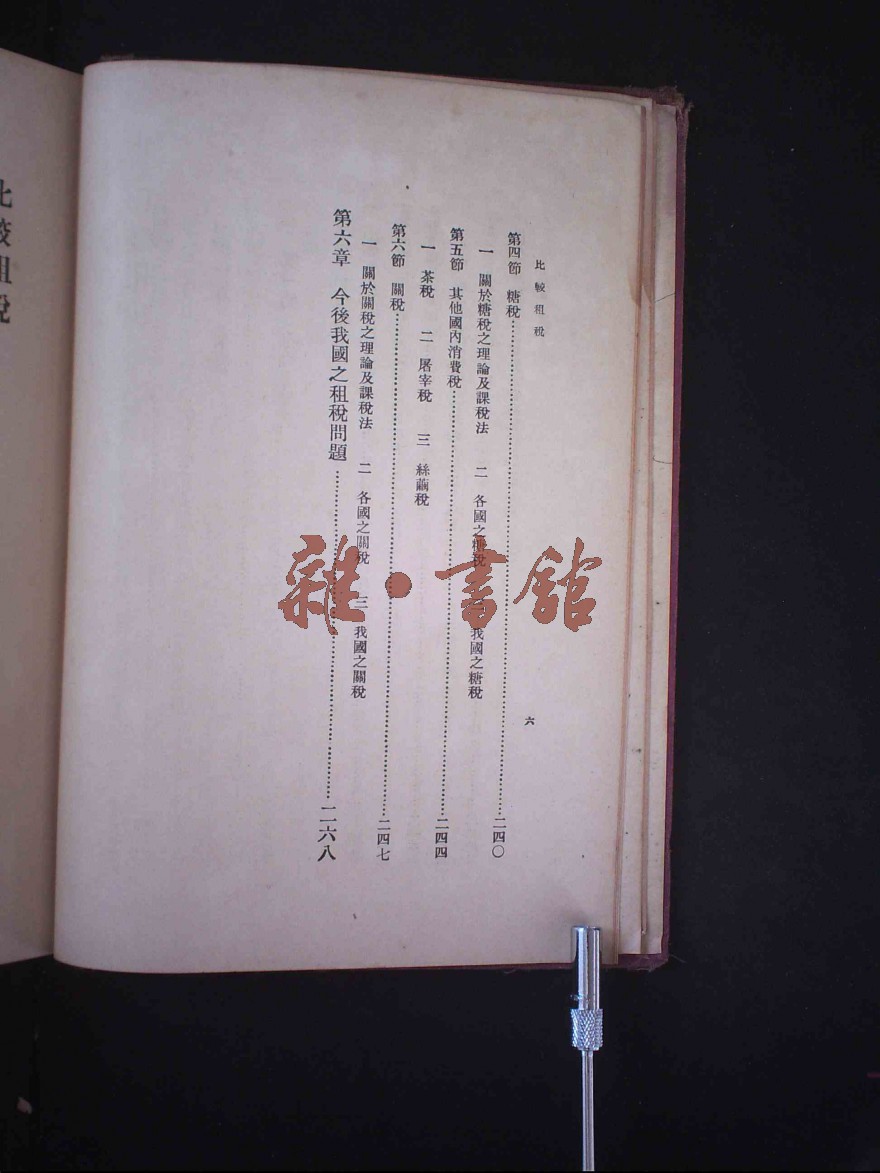 比較租稅
六
第四節 糖稅……二四〇
一 關於糖稅之理論及課稅法 二 各國之糖稅 三 我國之糖稅
第五節 其他國內消費稅……二四四
一 茶稅 二 屠宰稅 三 絲繭稅
第六節 關稅……二四七
一 關於關稅之理論及課稅法 二 各國之關稅 三 我國之關稅
第六章 今後我國之租稅問題……二六八
比較租稅
雜·書館